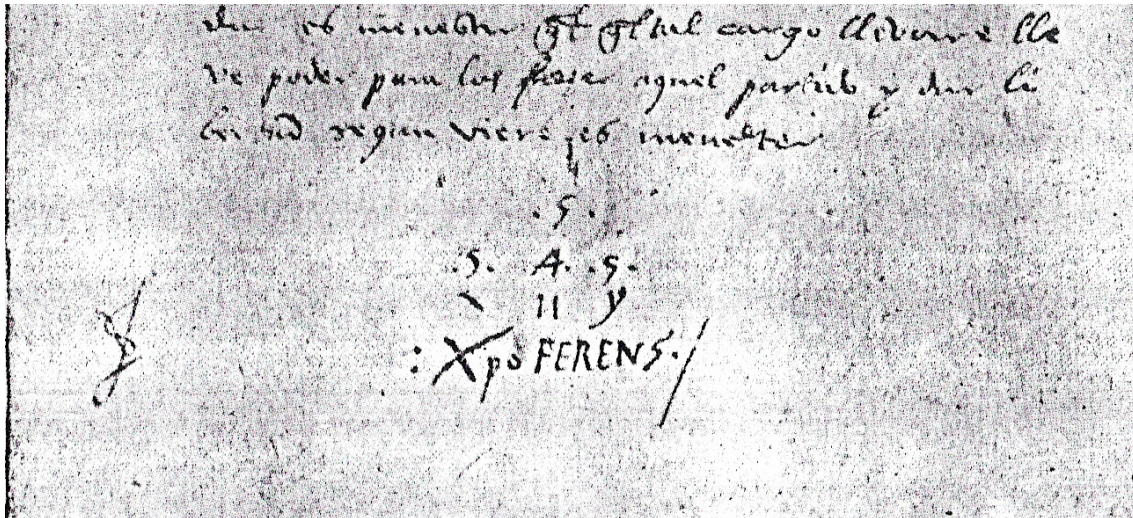 es menester q̃ q̃l tal cargo llevare lle
ve poder para los aquel partido y dar li
segun viere es menester
.S.
.S. A .S.
X M Y
: Xpo FERENS./